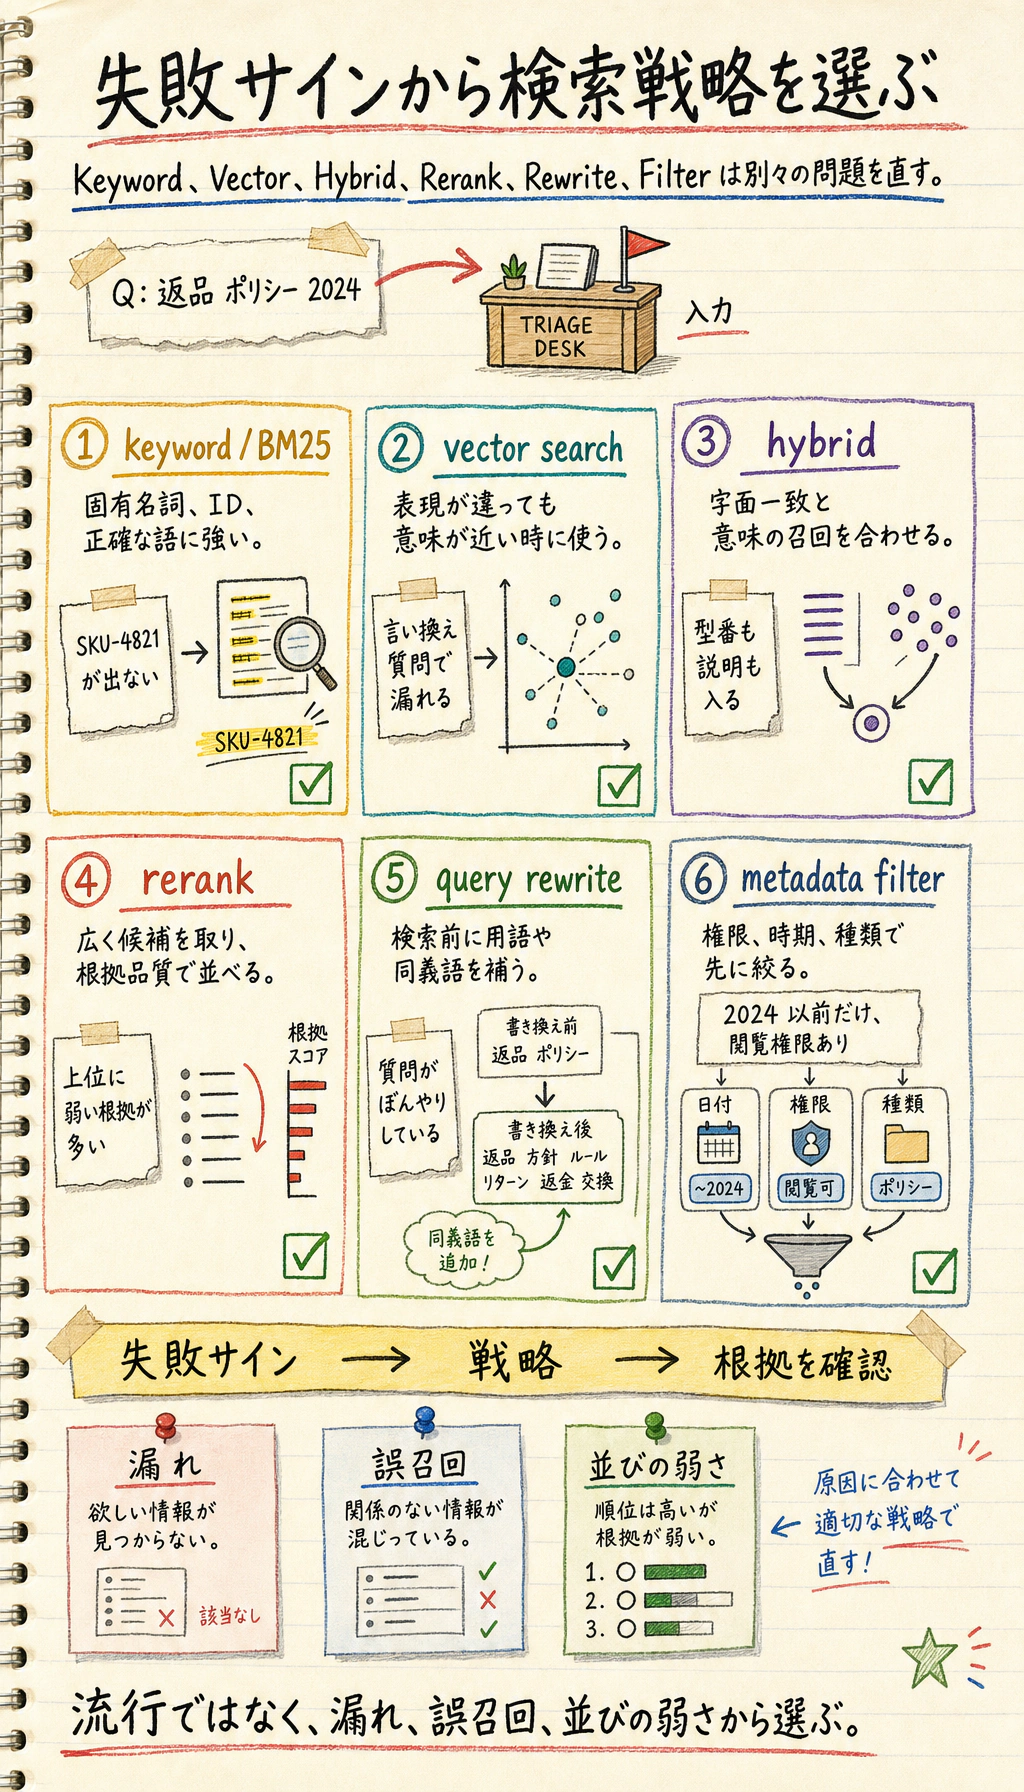 失敗サインから検索戦略を選ぶ
Keyword、Vector、Hybrid、Rerank、Rewrite、Filter は別々の問題を直す。
Q: 返品 ポリシー 2024
TRIAGE
DESK
入力
① keyword / BM25
固有名詞、ID、
正確な語に強い。
SKU-4821
が出ない
SKU-4821
② vector search
表現が違っても
意味が近い時に使う。
言い換え
質問で
漏れる
③ hybrid
字面一致と
意味の召回を合わせる。
型番も
説明も
入る
④ rerank
広く候補を取り、
根拠品質で並べる。
上位に
弱い根拠が
多い
根拠
スコア
⑤ query rewrite
検索前に用語や
同義語を補う。
質問が
ぼんやり
している
書き換え前
返品 ポリシー
書き換え後
返品 方針 ルール
リターン 返金 交換
同義語を
追加！
⑥ metadata filter
権限、時期、種類で
先に絞る。
2024 以前だけ、
閲覧権限あり
日付
~2024
権限
閲覧可
種類
ポリシー
失敗サイン → 戦略 → 根拠を確認
漏れ
欲しい情報が
見つからない。
該当なし
誤召回
関係のない情報が
混じっている。
並びの弱さ
順位は高いが
根拠が弱い。
1.
2.
3.
原因に合わせて
適切な戦略で
直す！
流行ではなく、漏れ、誤召回、並びの弱さから選ぶ。